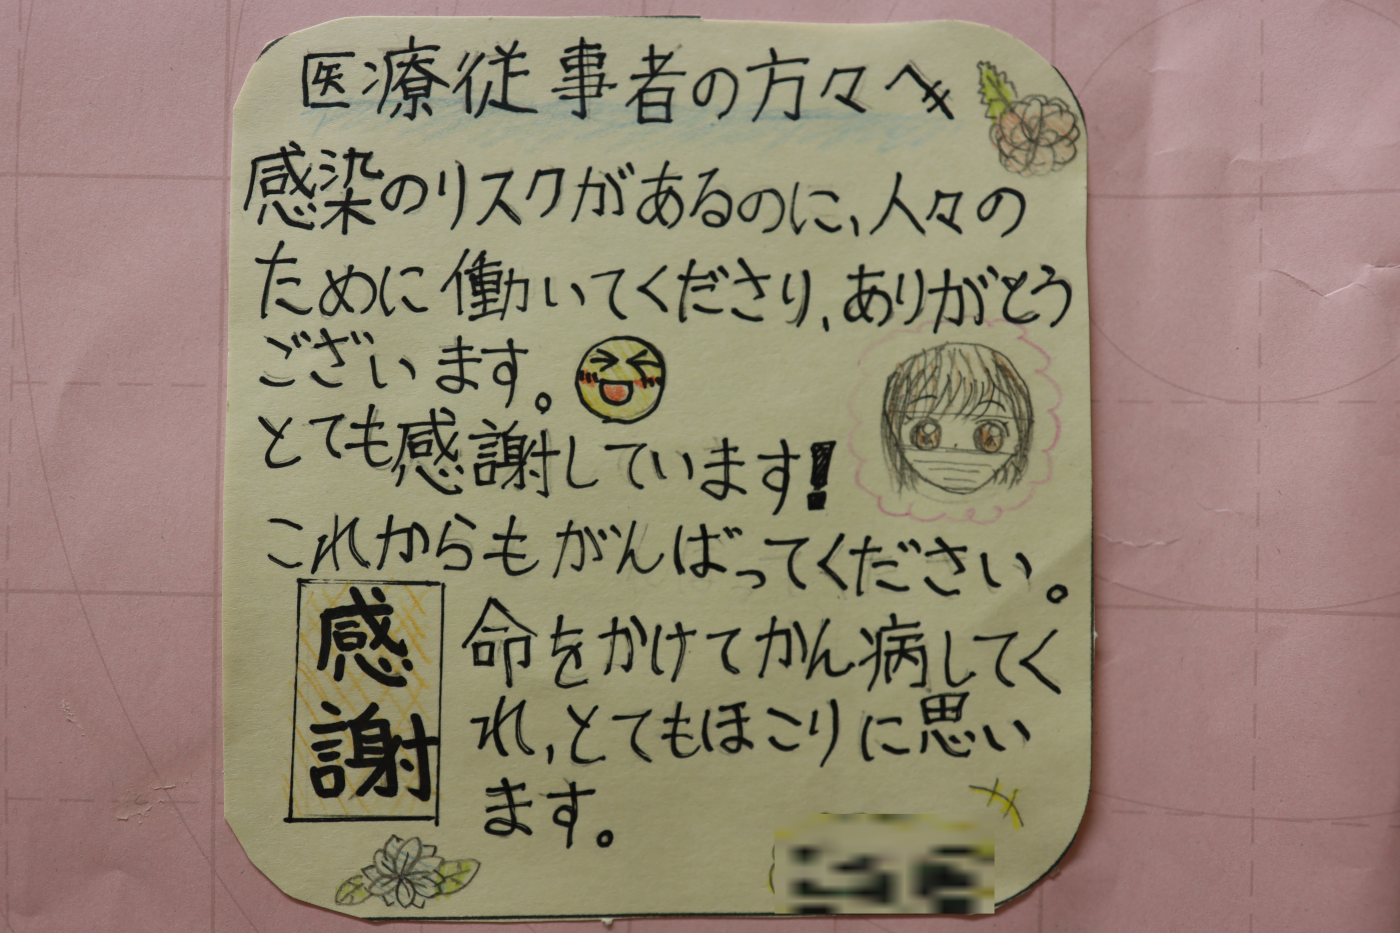 医療従事者の方々へ
感染のリスクがあるのに、人々の
ために働いてくださり、ありがとう
ございます。
とても感謝しています!
これからもがんばってください。
感謝
命をかけてかん病してく
れ、とてもほこりに思い
ます。